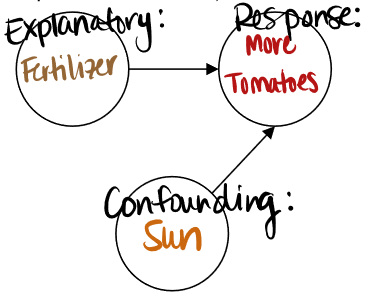 Explanatory:
Fertilizer
Response:
More
Tomatoes
Confounding:
Sun